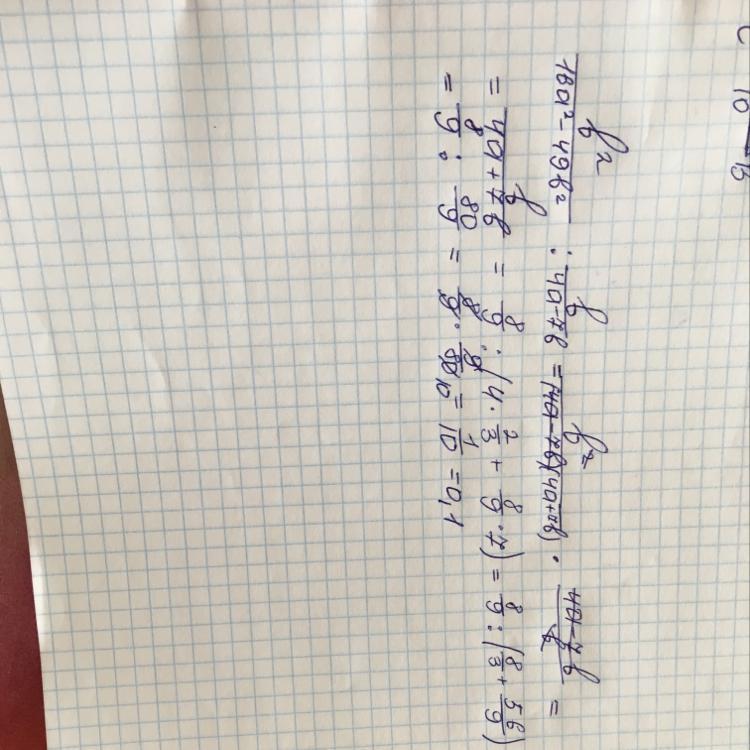 c 10 - b
b² / 16a² - 49b² : b / 4a - 7b = b² / (4a - 7b)(4a + 7b) · 4a - 7b / b =
= b / 4a + 7b = 8/9 : (4 · 2/3 + 8/9 · 7) = 8/9 : (8/3 + 56/9)
= 8/9 : 80/9 = 8/9 · 9/80 10 = 1/10 = 0,1